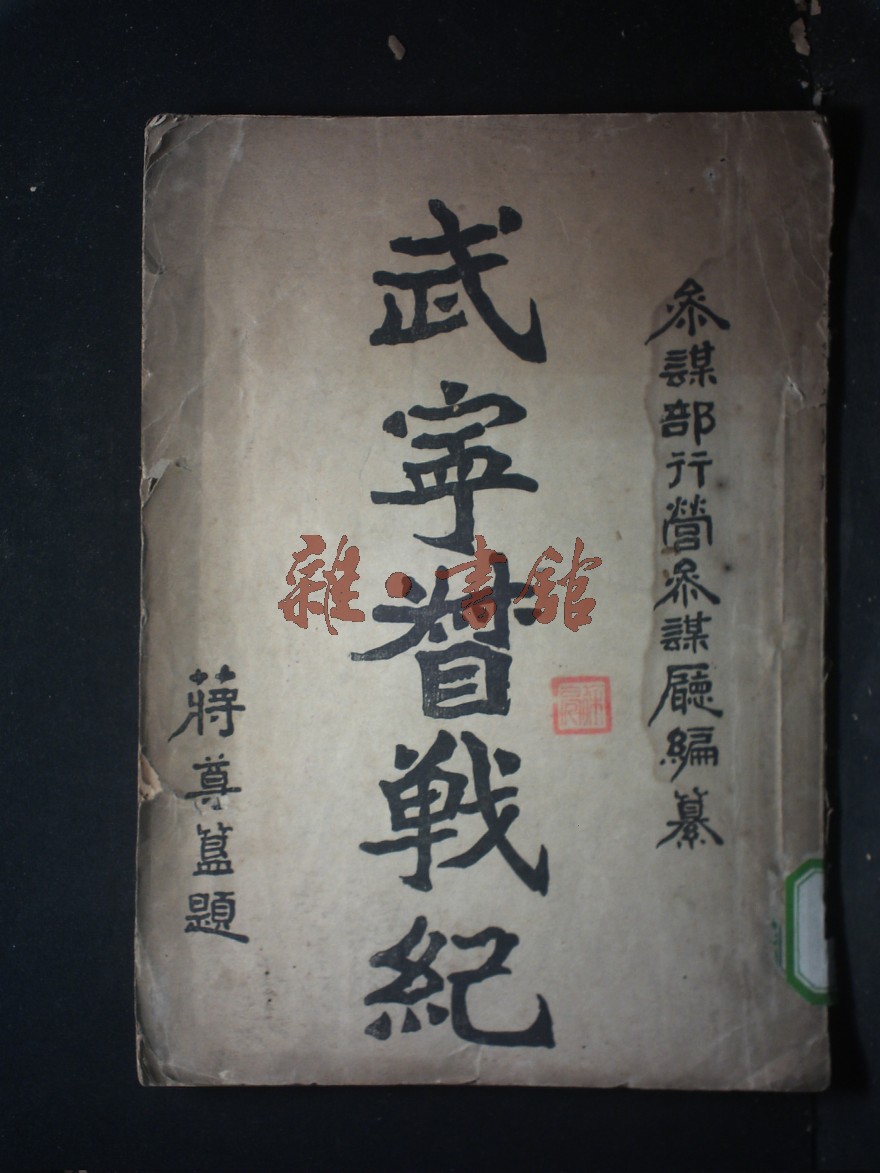 參謀部行營參謀廳編纂
武寧督戦紀
蔣尊簋題
雜·書館